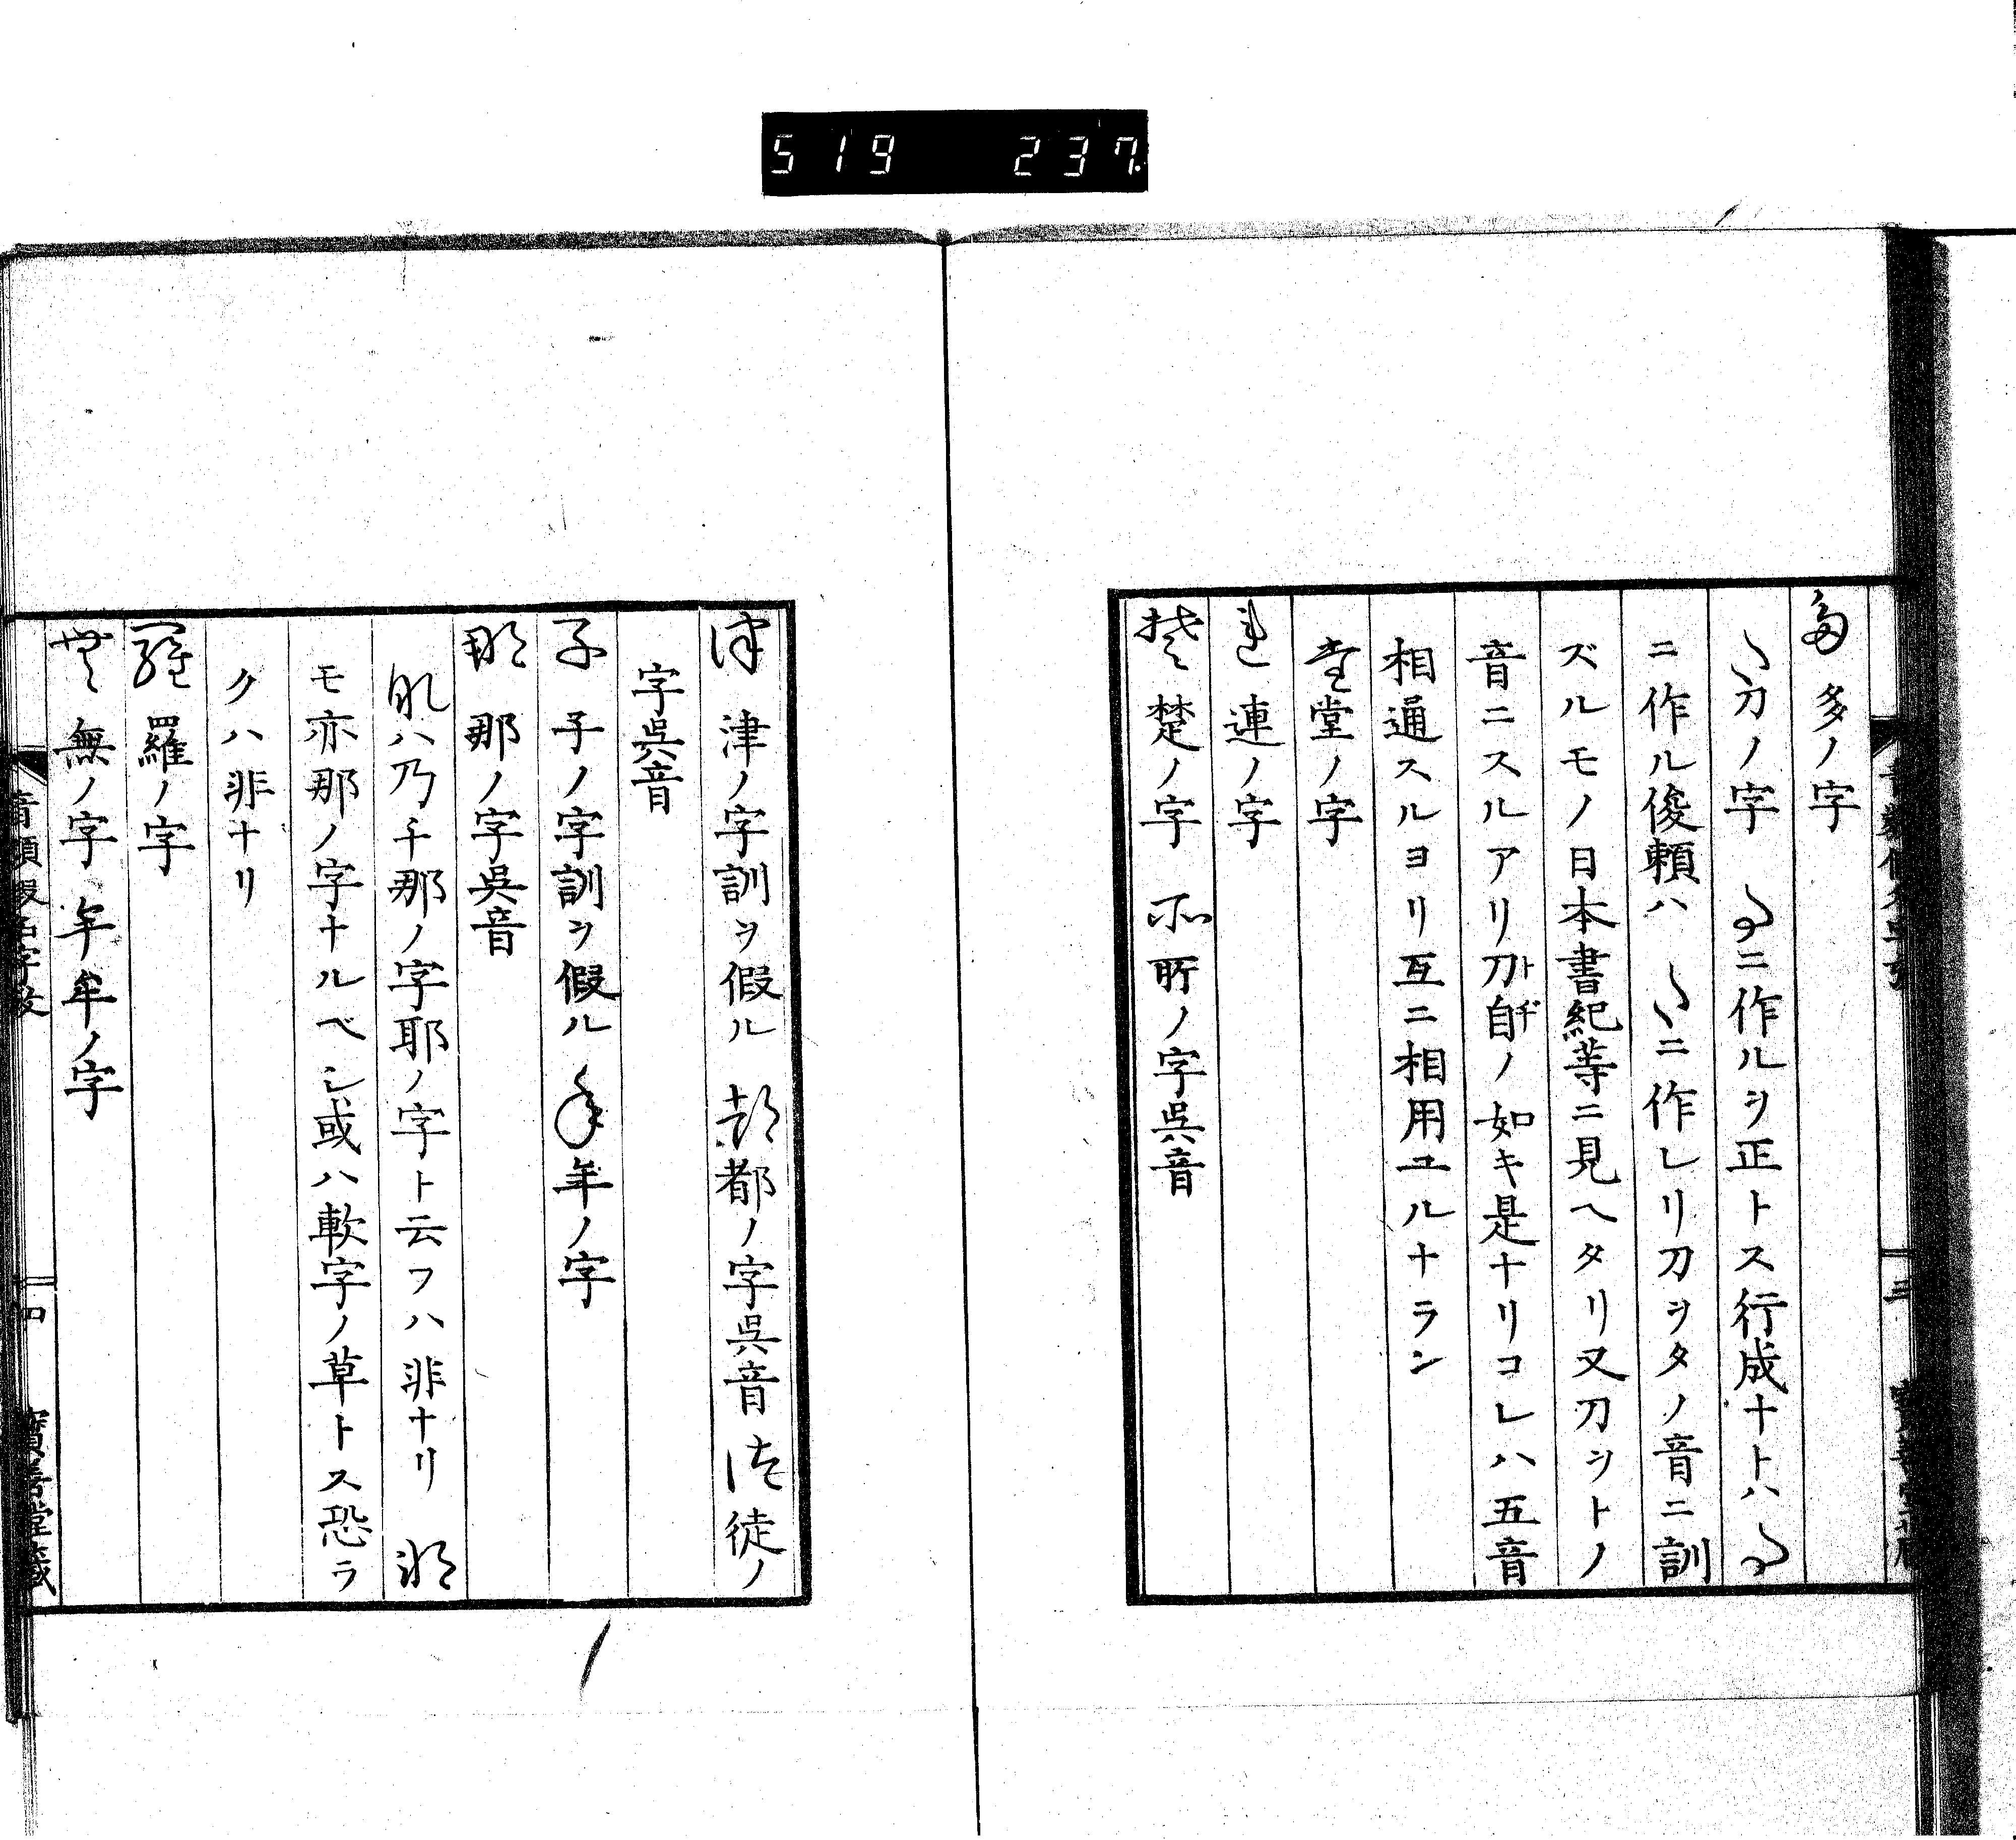 519 237
多ノ字
刀ノ字 ニ作ルヲ正トス行成ナトハ
ニ作ル俊頼ハ ニ作レリ刀ヲタノ音ニ訓
ズルモノ日本書紀等ニ見ヘタリ又刀ヲトノ
音ニスルアリ刀自ノ如キ是ナリコレハ五音
トヂ
相通スルヨリ互ニ相用ユルナラン
堂ノ字
連ノ字
楚ノ字 所ノ字呉音
津ノ字訓ヲ假ル 都ノ字呉音 徒ノ
字呉音
子 子ノ字訓ヲ假ル 年ノ字
那ノ字呉音
ハ乃チ那ノ字耶ノ字ト云フハ非ナリ
モ亦那ノ字ナルベシ或ハ軟字ノ草トス恐ラ
クハ非ナリ
羅ノ字
無ノ字 牟ノ字
音韻假名字攷
四
寶善堂藏